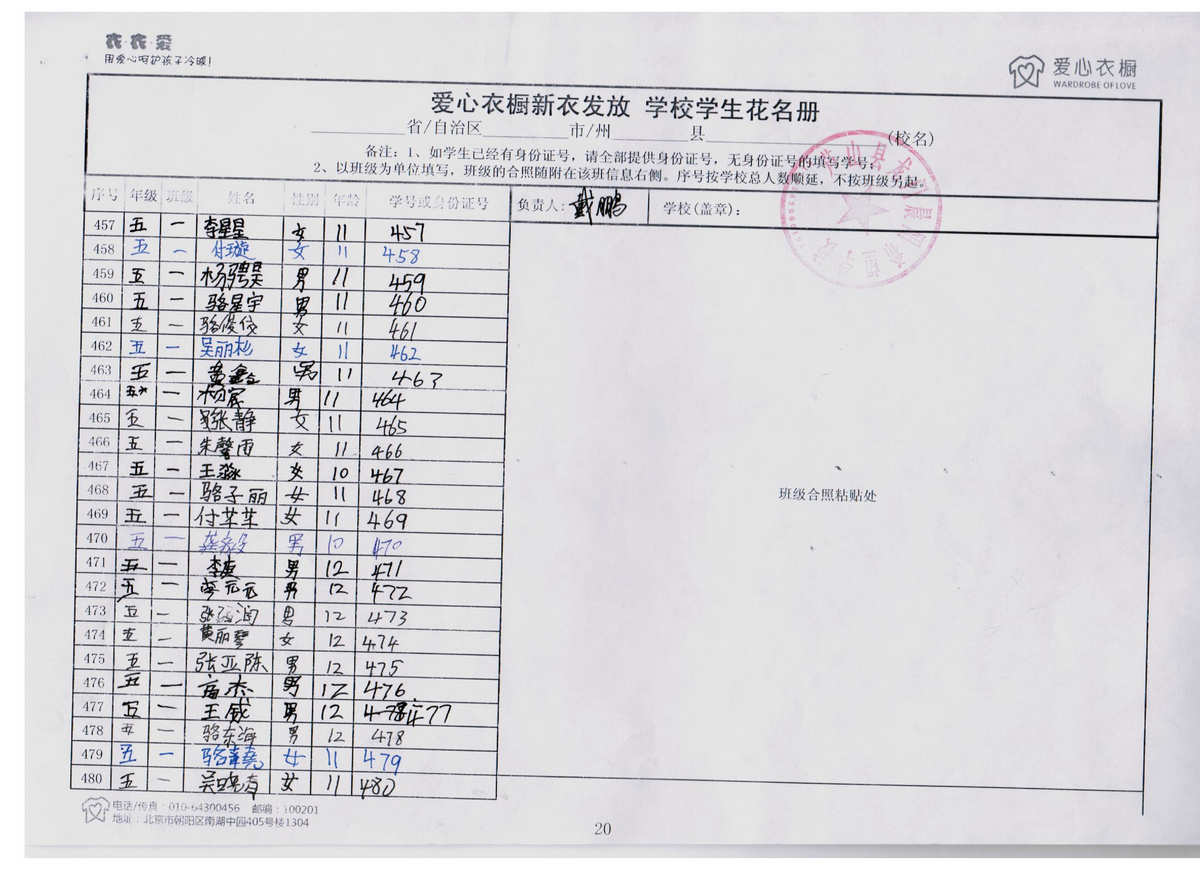 衣·衣·爱
用爱心呵护孩子冷暖!
爱心衣橱
WARDROBE OF LOVE
爱心衣橱新衣发放 学校学生花名册
__________省/自治区_________市/州________县____________________(校名)
备注: 1、如学生已经有身份证号,请全部提供身份证号,无身份证号的填写学号;
2、以班级为单位填写,班级的合照随附在该班信息右侧。序号按学校总人数顺延,不按班级另起。
序号 年级 班级 姓名 性别 年龄 学号或身份证号 负责人: 戴鹏 学校(盖章):
457 五 一 李星星 女 11 457
458 五 一 付璇 女 11 458
459 五 一 杨骋昊 男 11 459
460 五 一 骆星宇 男 11 460
461 五 一 骆俊 女 11 461
462 五 一 吴丽杉 女 11 462
463 五 一 黄鑫 男 11 463
464 五 杨宸 男 11 464
465 五 一 张静 女 11 465
466 五 一 朱馨雨 女 11 466
467 五 一 王淼 女 10 467
468 五 一 骆子丽 女 11 468
469 五 一 付芊芊 女 11 469
470 五 一 龚 男 10 470
471 五 一 李庚 男 12 471
472 五 一 元元 男 12 472
473 五 一 张润 男 12 473
474 五 一 黄丽琴 女 12 474
475 五 一 张亚陈 男 12 475
476 五 一 高杰 男 12 476
477 五 一 王威 男 12 477
478 五 一 骆东海 男 12 478
479 五 一 骆 女 11 479
480 五 一 吴晓春 女 11 480
班级合照粘贴处
电话/传真:010-64300456 邮编:100201
地址:北京市朝阳区南湖中园405号楼1304
20